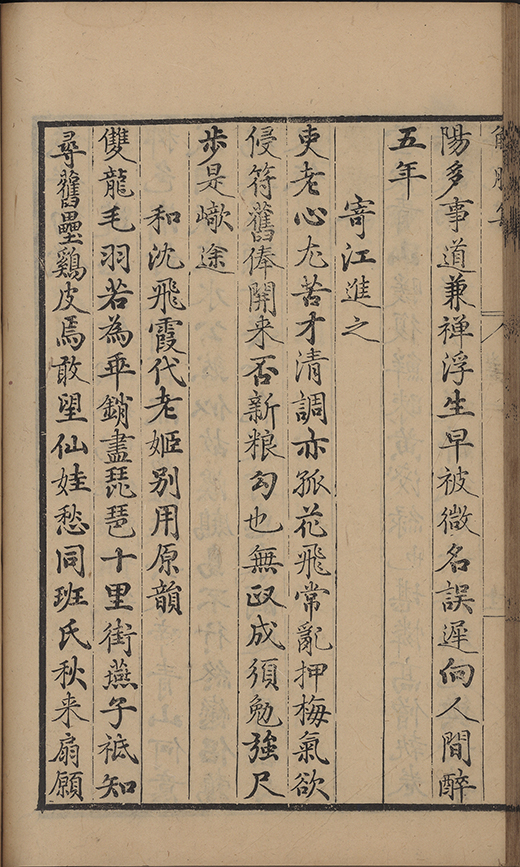 陽多事道兼禅浮生早被微名誤遲向人間醉
五年
寄江進之
吏老心尤苦才清調亦孤花飛常亂押梅氣欲
侵符舊俸開来否新粮勾也無政成須勉強尺
步是巇途
和沈飛霞代老姬別用原韻
雙龍毛羽若為平銷盡琵琶十里街燕子祗知
尋舊壘鷄皮焉敢望仙娃愁同班氏秋来扇願